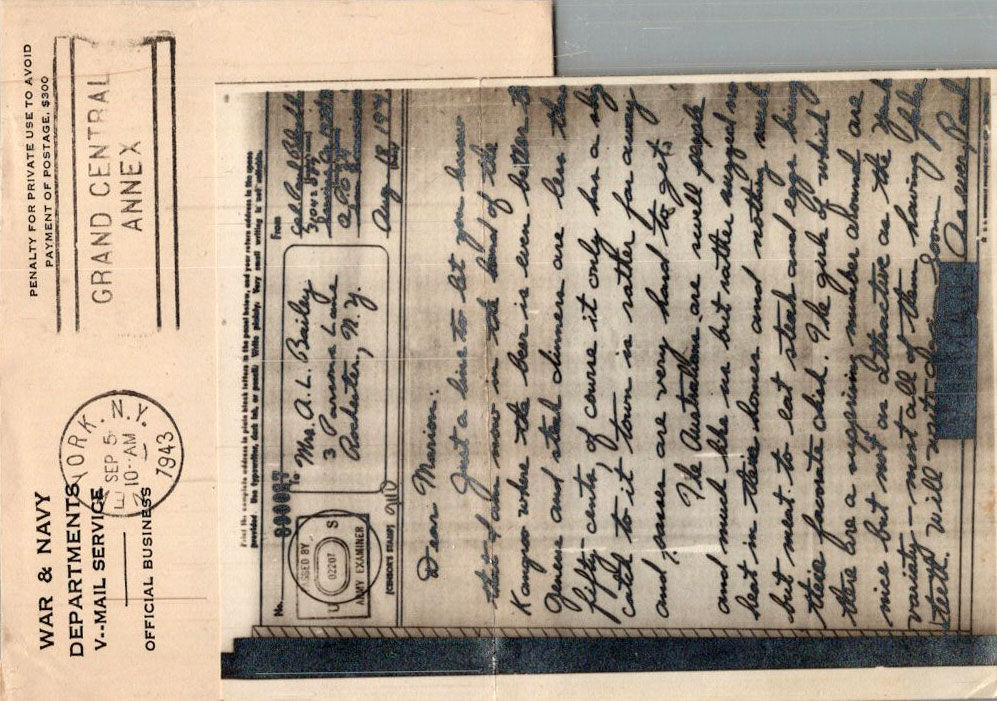 WAR & NAVY
DEPARTMENTS
V--MAIL SERVICE
OFFICIAL BUSINESS
PENALTY FOR PRIVATE USE TO AVOID
PAYMENT OF POSTAGE, $300
YORK, N.Y.
SEP 5
10-AM
1943
GRAND CENTRAL
ANNEX
Print the complete address in plain block letters in the panel below, and your return address in the space
provided. Use typewriter, dark ink, or pencil. Write plainly. Very small writing is not suitable.
No.
To
Mrs. A. L. Bailey
3 Parsons Lane
Rochester, N.Y.
From
Aug 18 194
(Date)
PASSED BY
U S
02207
ARMY EXAMINER
(CENSOR'S STAMP)
Dear Marion:
Just a line to let you know
that I am now in the land of the
Kangroo where the beer is even better th
Genesee and steak dinners are less than
fifty-cents, of course it only has a big
catch to it, town is rather far away
and passes are very hard to get.
The Australians are swell people
and much like us but rather rugged
best in their homes and nothing much
but meat. to eat steak and eggs being
their favorate dish. The girls of which
there are a surprising number around are
nice but not as attractive as the Yank
variaty - most all of them having false
teeth. Will write again soon
As ever, Paul